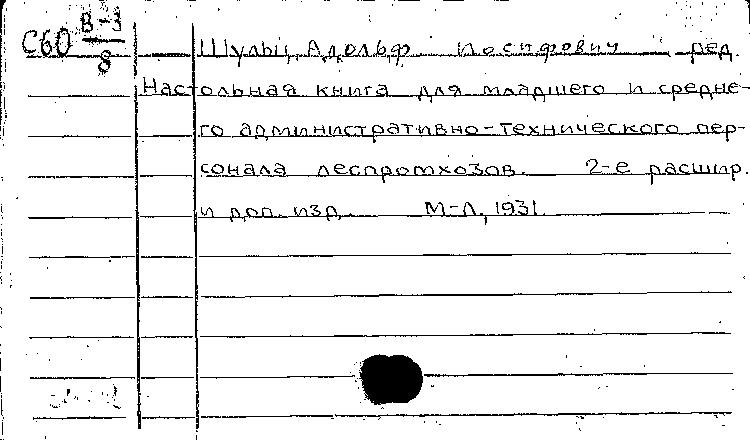 С60 В-3/8
Шульц, Адольф Иосифович ред.
Настольная книга для младшего и средне-
го административно-технического пер-
сонала леспромхозов. 2-е расшир.
и доп. изд. М-Л, 1931.